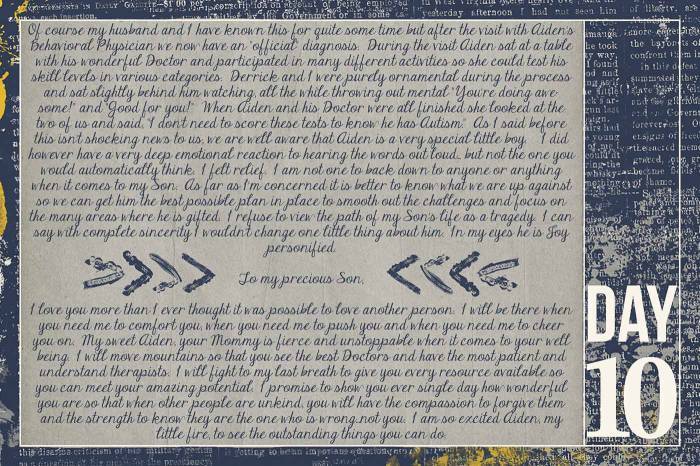 Of course my husband and I have known this for quite some time but after the visit with Aiden's
Behavioral Physician we now have an "official" diagnosis. During the visit Aiden sat at a table
with his wonderful Doctor and participated in many different activities so she could test his
skill levels in various categories. Derrick and I were purely ornamental during the process
and sat slightly behind him watching, all the while throwing out mental "You're doing awe-
some!" and "Good for you!" When Aiden and his Doctor were all finished she looked at the
two of us and said, "I don't need to score these tests to know he has Autism." As I said before
this isn't shocking news to us, we are well aware that Aiden is a very special little boy. I did
however have a very deep emotional reaction to hearing the words out loud... but not the one you
would automatically think. I felt relief. I am not one to back down to anyone or anything
when it comes to my Son. As far as I'm concerned it is better to know what we are up against
so we can get him the best possible plan in place to smooth out the challenges and focus on
the many areas where he is gifted. I refuse to view the path of my Son's life as a tragedy. I can
say with complete sincerity I wouldn't change one little thing about him. In my eyes he is Joy
personified.
To my precious Son,
I love you more than I ever thought it was possible to love another person. I will be there when
you need me to comfort you, when you need me to push you and when you need me to cheer
you on. My sweet Aiden, your Mommy is fierce and unstoppable when it comes to your well
being. I will move mountains so that you see the best Doctors and have the most patient and
understand therapists. I will fight to my last breath to give you every resource available so
you can meet your amazing potential. I promise to show you ever single day how wonderful
you are so that when other people are unkind, you will have the compassion to forgive them
and the strength to know they are the one who is wrong...not you. I am so excited Aiden, my
little fire, to see the outstanding things you can do.
DAY
10